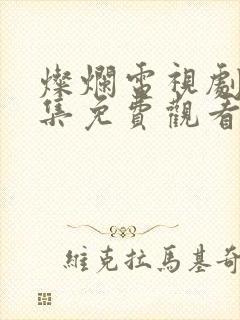 燦爛電視劇
集免費觀看
維克拉馬基奇